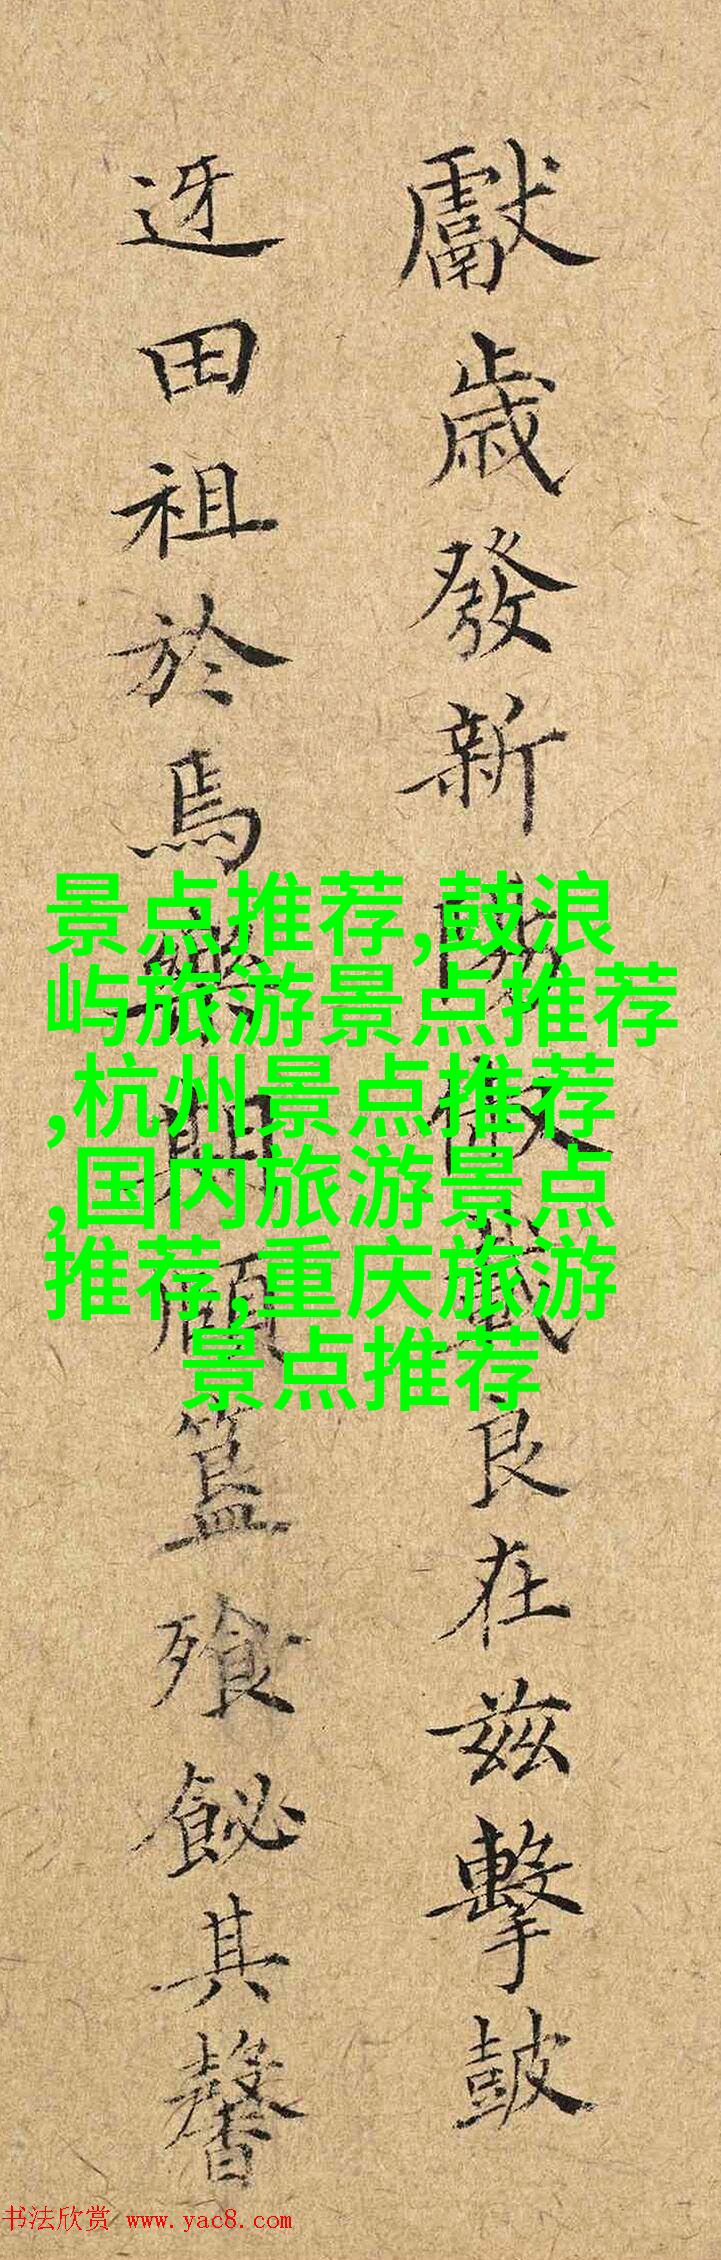 獻歲發新俶載良在茲擊鼓
迓田祖於焉樂期簋飧飶其馨
景点推荐,鼓浪
屿旅游景点推荐
,杭州景点推荐
,国内旅游景点
推荐,重庆旅游
景点推荐
书法欣赏 www.yac8.com